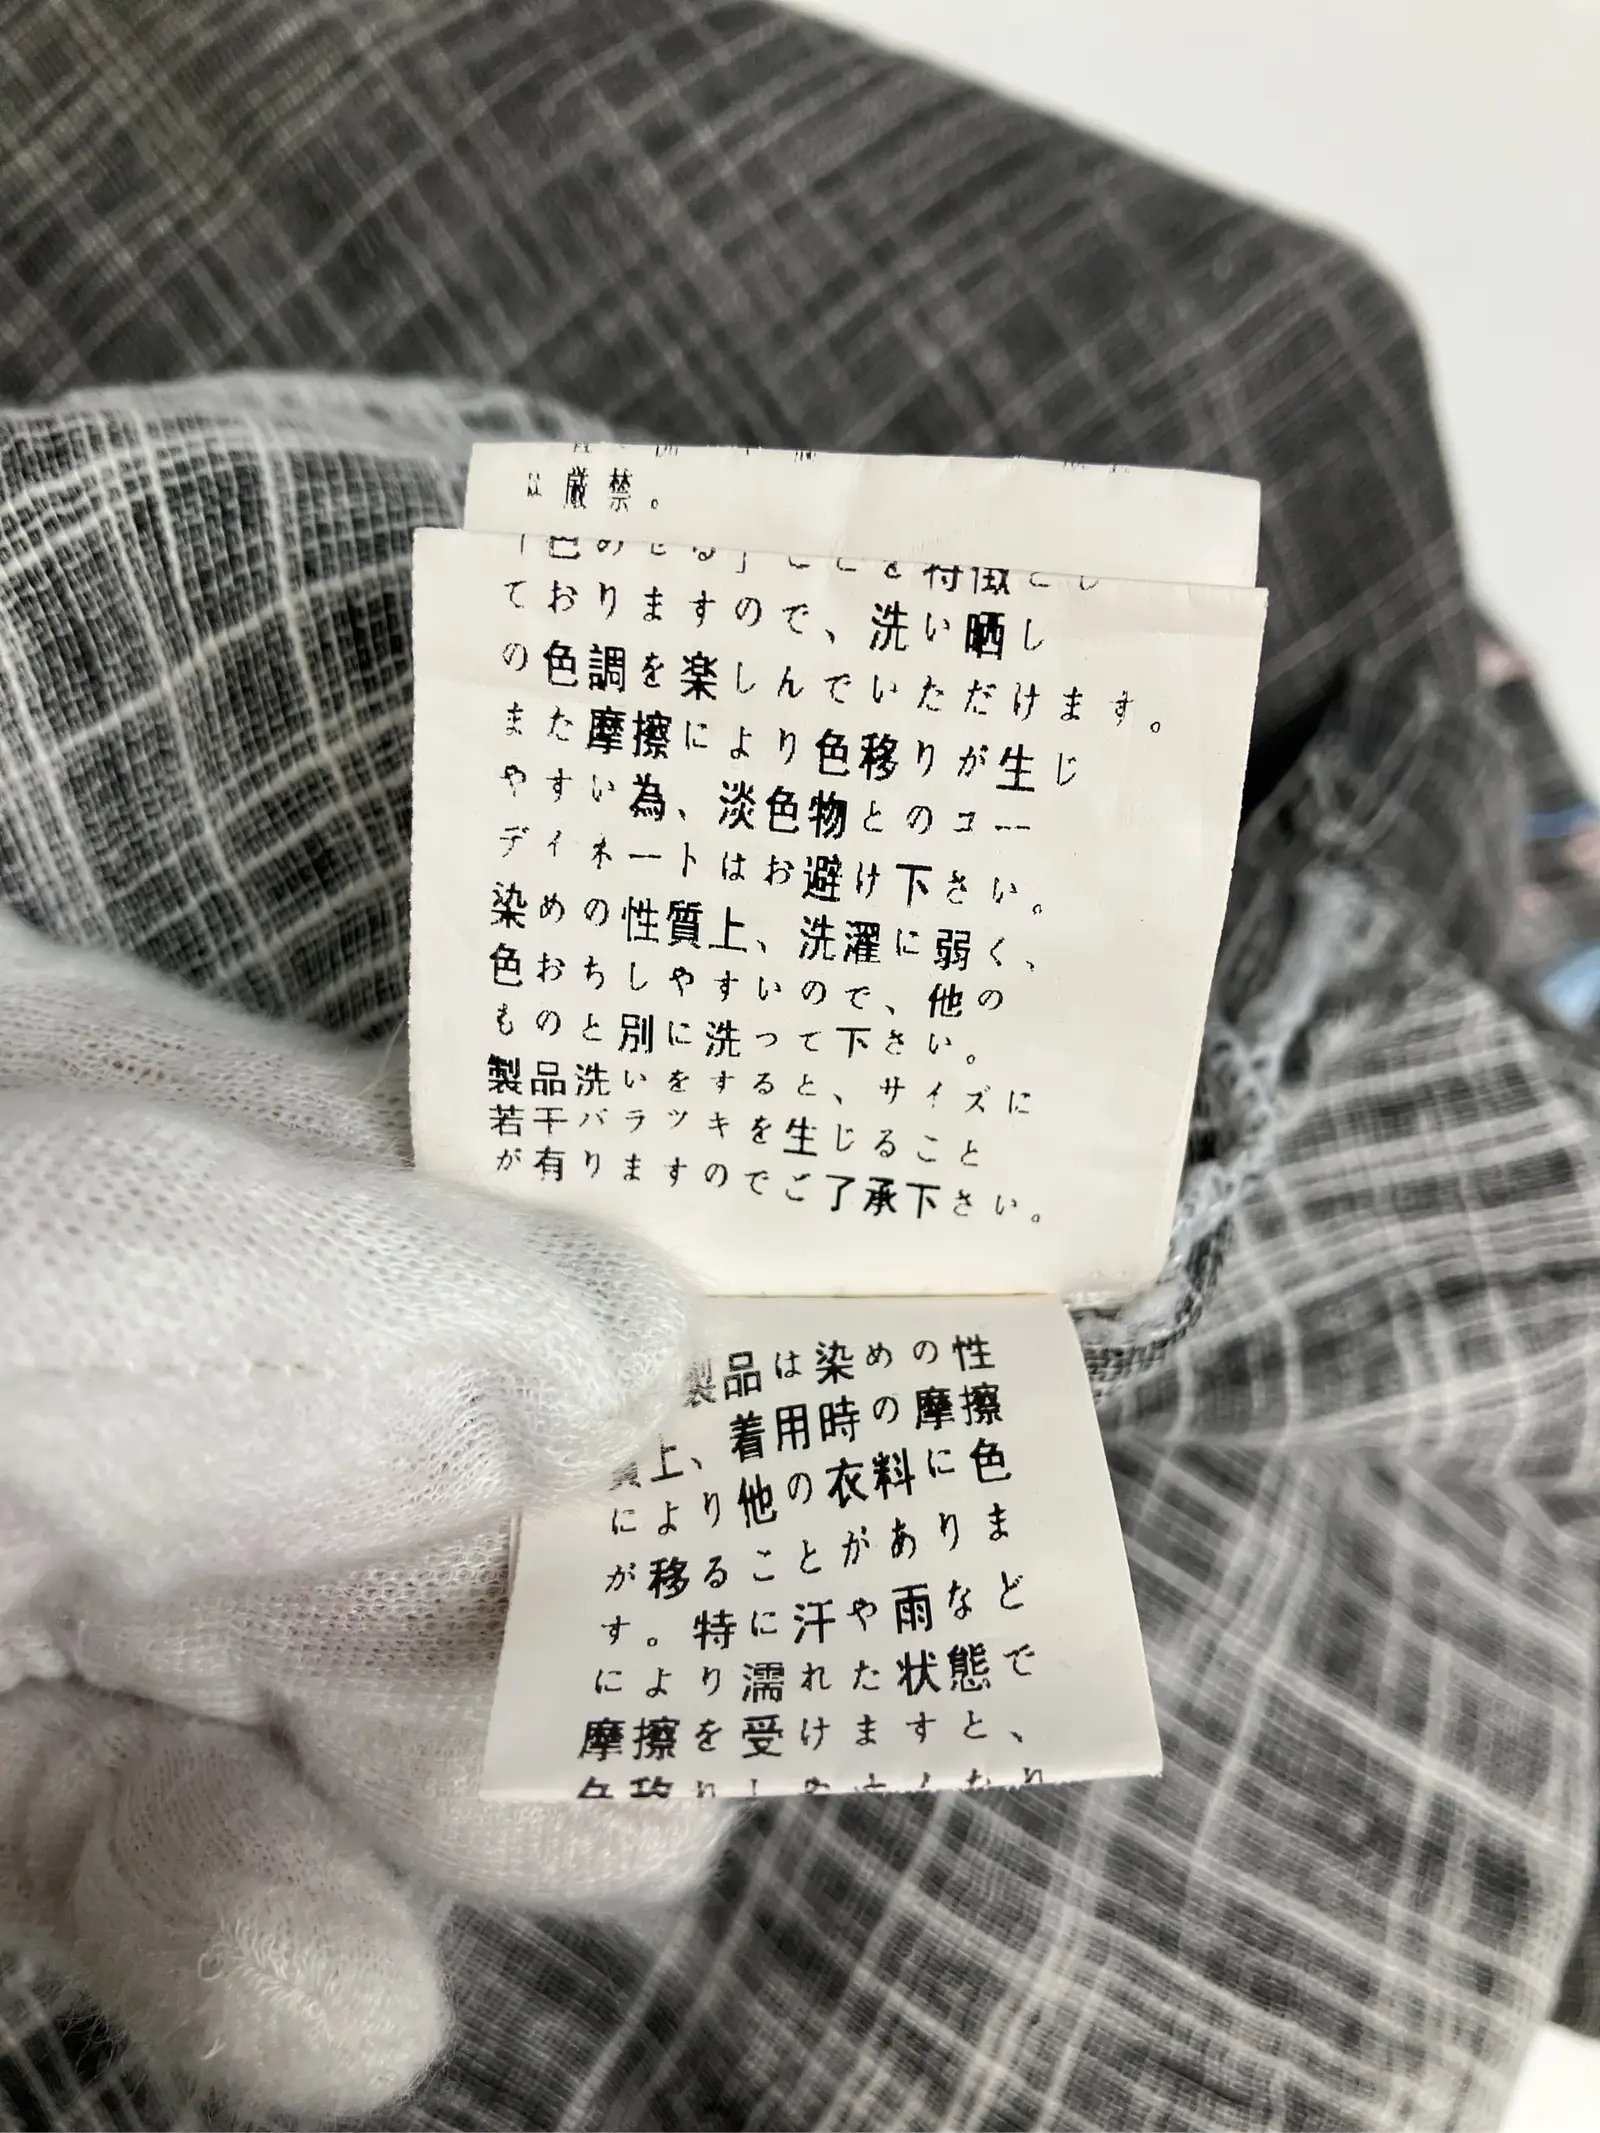 は厳禁。
「色あせる」ことを特徴とし
ておりますので、洗い晒し
の色調を楽しんでいただけます。
また摩擦により色移りが生じ
やすい為、淡色物とのコー
ディネートはお避け下さい。
染めの性質上、洗濯に弱く、
色おちしやすいので、他の
ものと別に洗って下さい。
製品洗いをすると、サイズに
若干バラツキを生じること
が有りますのでご了承下さい。
製品は染めの性
質上、着用時の摩擦
により他の衣料に色
が移ることがありま
す。特に汗や雨など
により濡れた状態で
摩擦を受けますと、
色移りしやすくなり